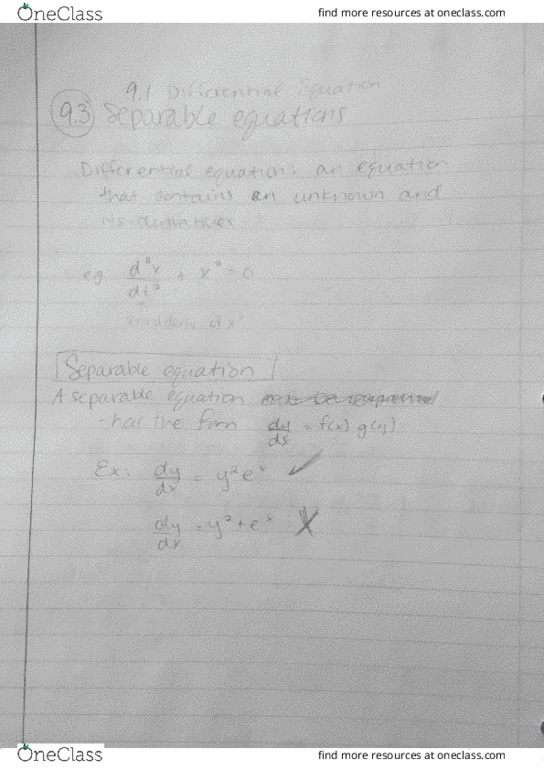 OneClass
find more resources at oneclass.com
9.1 Differential Equation
9.3 Separable equations
Differential equation: an equation
that contains an unknown and
its derivatives
eg. d²x/dt² + x² = 0
Separable equation
A separable equation
- has the form dy/dx = f(x) g(y)
Ex: dy/dx = y²eˣ ✓
dy/dx = y² + eˣ X
OneClass
find more resources at oneclass.com